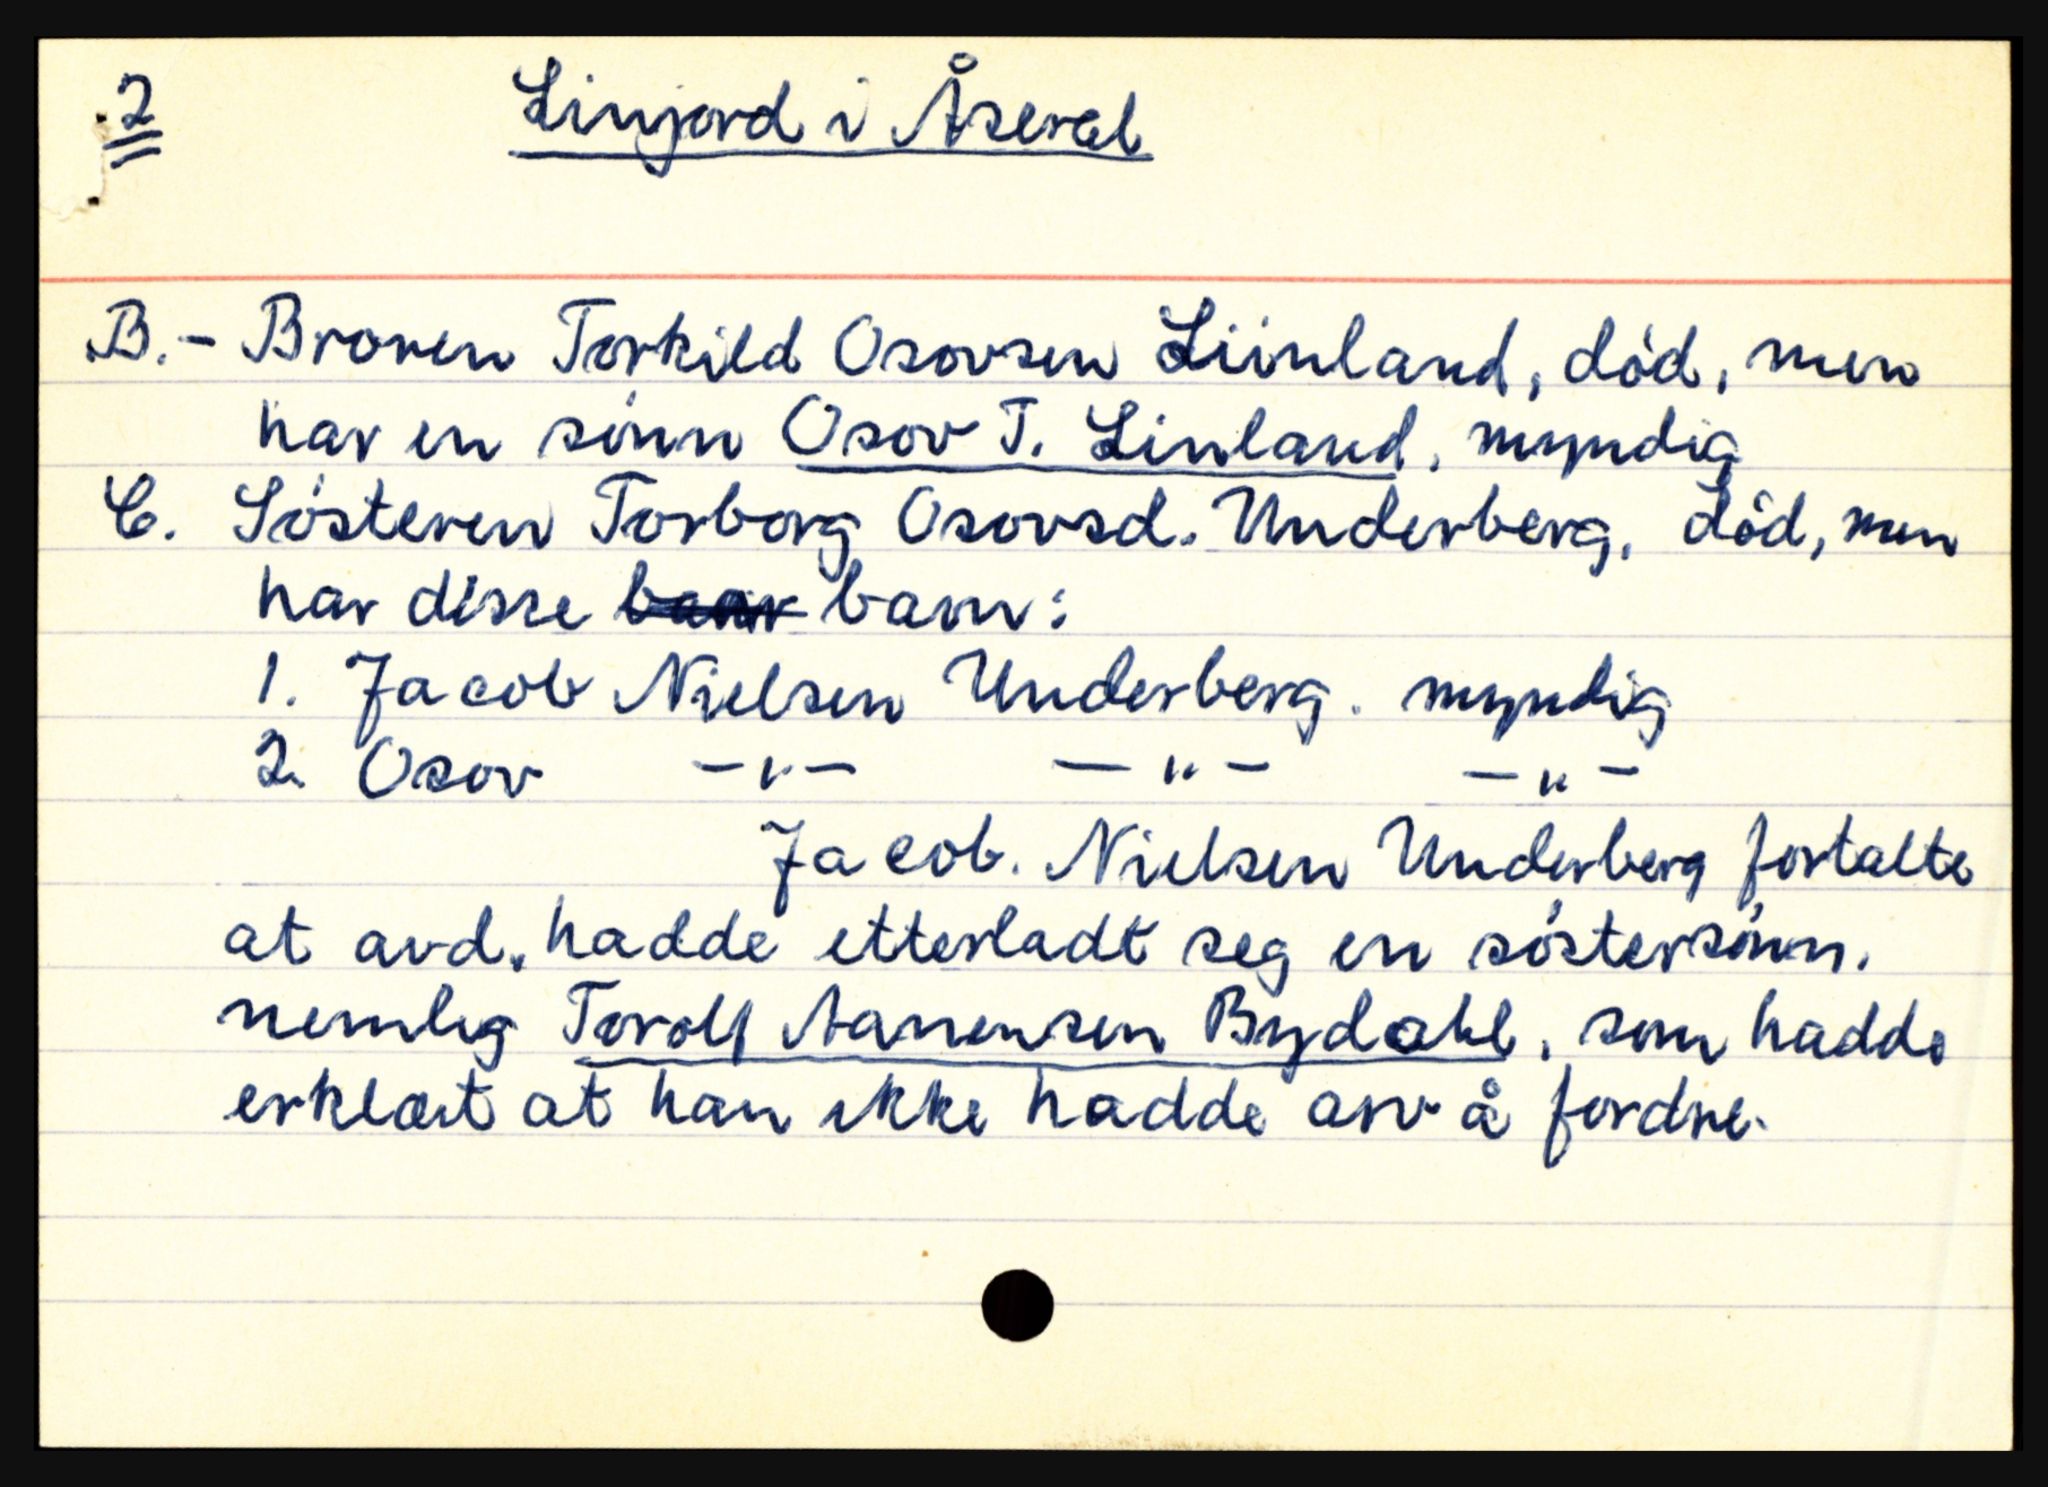 2 Linjord i Åseral
B. - Broren Torkild Osovsen Liinland, død, men
har en sønn Osov T. Linland, myndig
C. Søsteren Torborg Osovsd. Underberg, død, men
har disse barn:
1. Jacob Nielsen Underberg. myndig
2. Osov -"- -"- -"-
Jacob. Nielsen Underberg fortalte
at avd. hadde etterladt seg en søstersønn,
nemlig Torolf Aanensen Bydahl, som hadde
erklært at han ikke hadde arv å fordre.